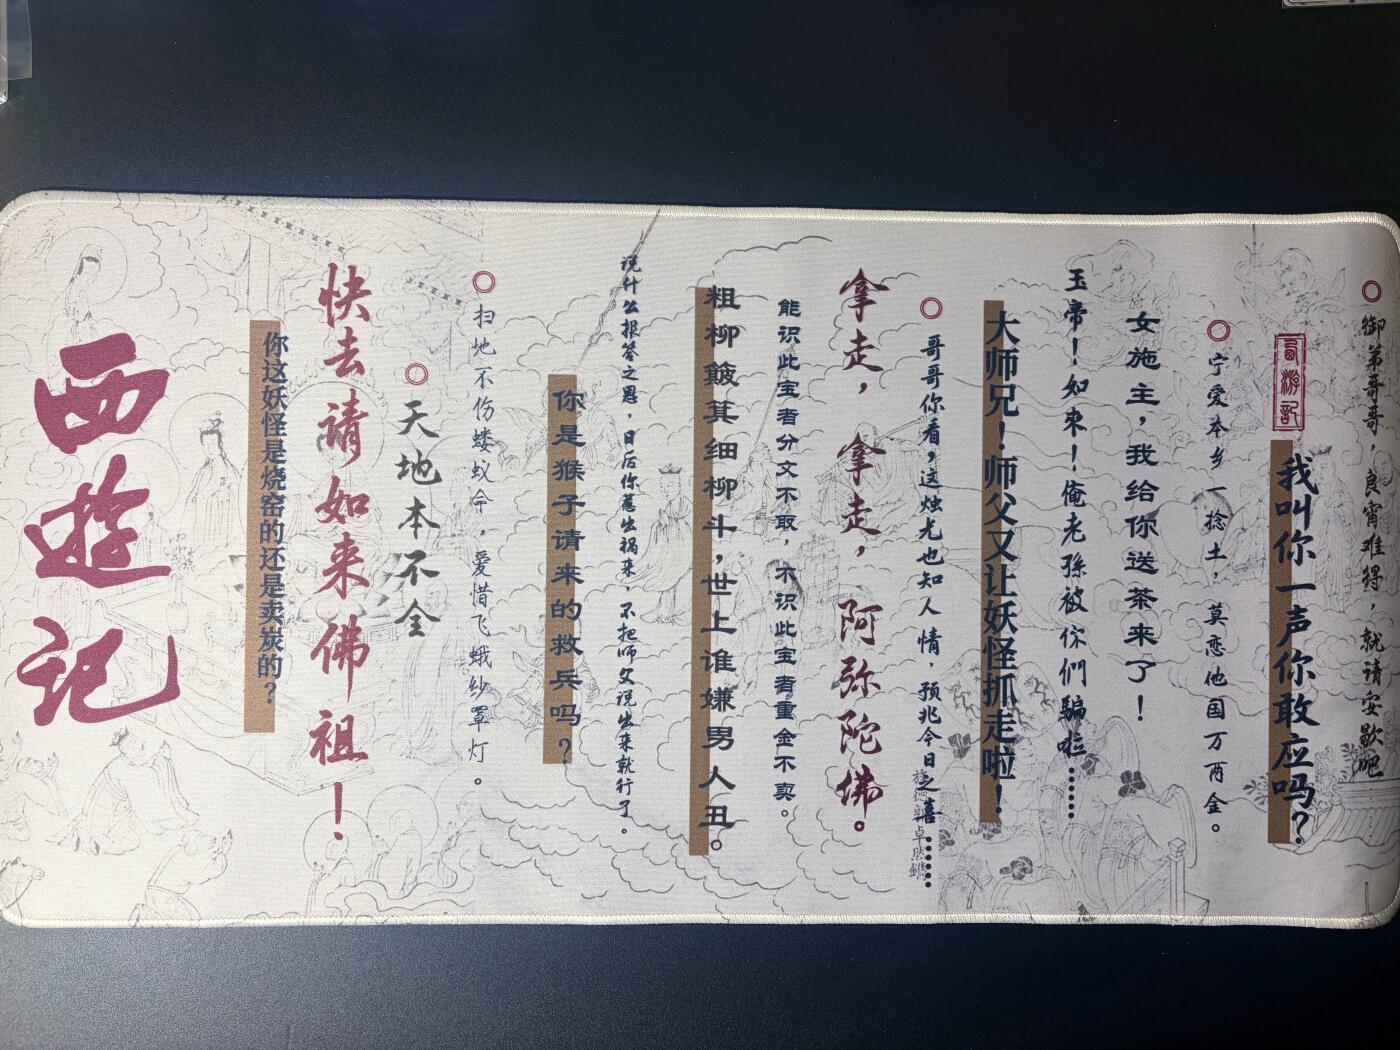 御弟哥哥，良宵难得，就请安歇吧
西游記
我叫你一声你敢应吗？
宁爱本乡一捻土，莫恋他国万两金。
女施主，我给你送茶来了！
玉帝！如来！俺老孫被你們騙啦……
大师兄！师父又让妖怪抓走啦！
哥哥你看，这烛光也知人情，预兆今日之喜……
拿走，拿走，阿弥陀佛。
能识此宝者分文不取，不识此宝者重金不卖。
粗柳簸萁细柳斗，世上谁嫌男人丑。
说什么报答之恩，日后你惹出祸来，不把师父说出来就行了。
你是猴子请来的救兵吗？
扫地不伤蝼蚁命，爱惜飞蛾纱罩灯。
天地本不全
快去请如来佛祖！
你这妖怪是烧窑的还是卖炭的？
西遊記